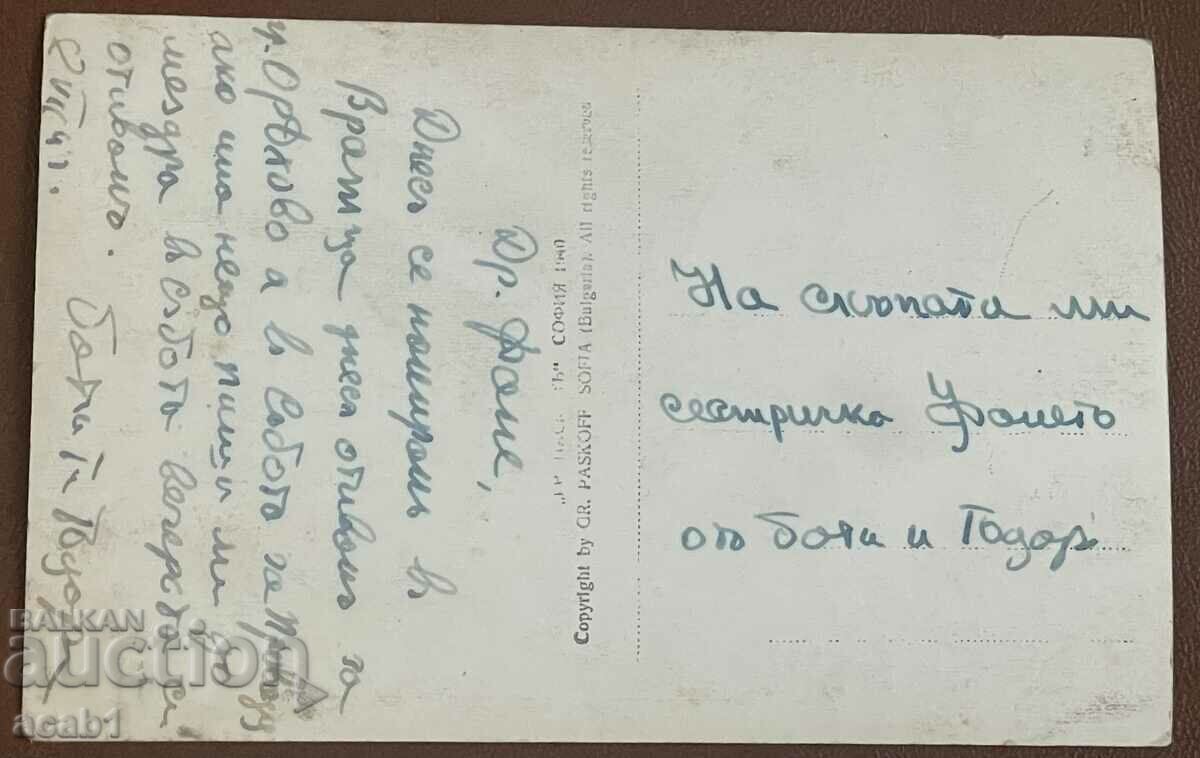 Др. Фоне,
Днесъ се намирамъ въ
Враца днесъ отивамъ за
г. Орѣхово а въ събота за
ако има нещо пиши ми до
Мездра въ събота вечерта си
отивамъ. Боти и Тодоръ
"ГР. ПАСК  ВЪ" СОФИЯ 1940
Copyright by GR. PASKOFF SOFIA (Bulgaria). All rights reserved
На скъпата ми
сестричка Фонетъ
отъ Боти и Тодоръ
BALKAN
auction
acab1